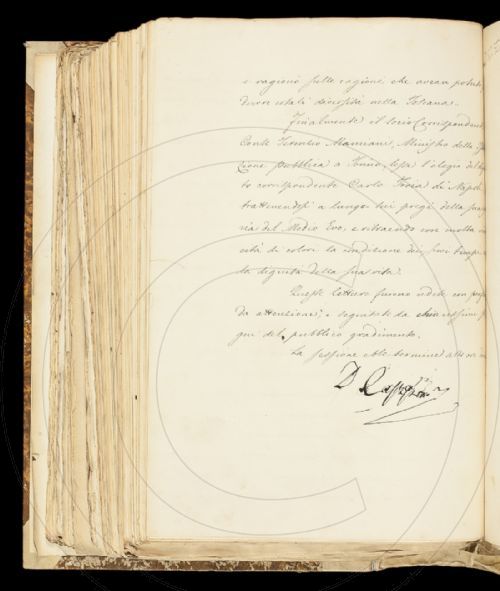 e ragionò sulle cagioni che avean potuto
dare tale diversità nella Toscana.
Finalmente il Socio Corrispondente
Conte Terenzio Mamiani, Ministro della
zione pubblica a Torino, lesse l'elogio del
to corrispondente Carlo Troia di Napoli
trattenendosi a lungo sui pregi della sua
ria del Medio Evo, e ritraendo con molta
età di colori la condizione dei suoi tempi
la dignità della sua vita.
Queste letture furono udite con
da attenzione, e seguitate da
gni del pubblico gradimento.
La sessione ebbe termine alle ore